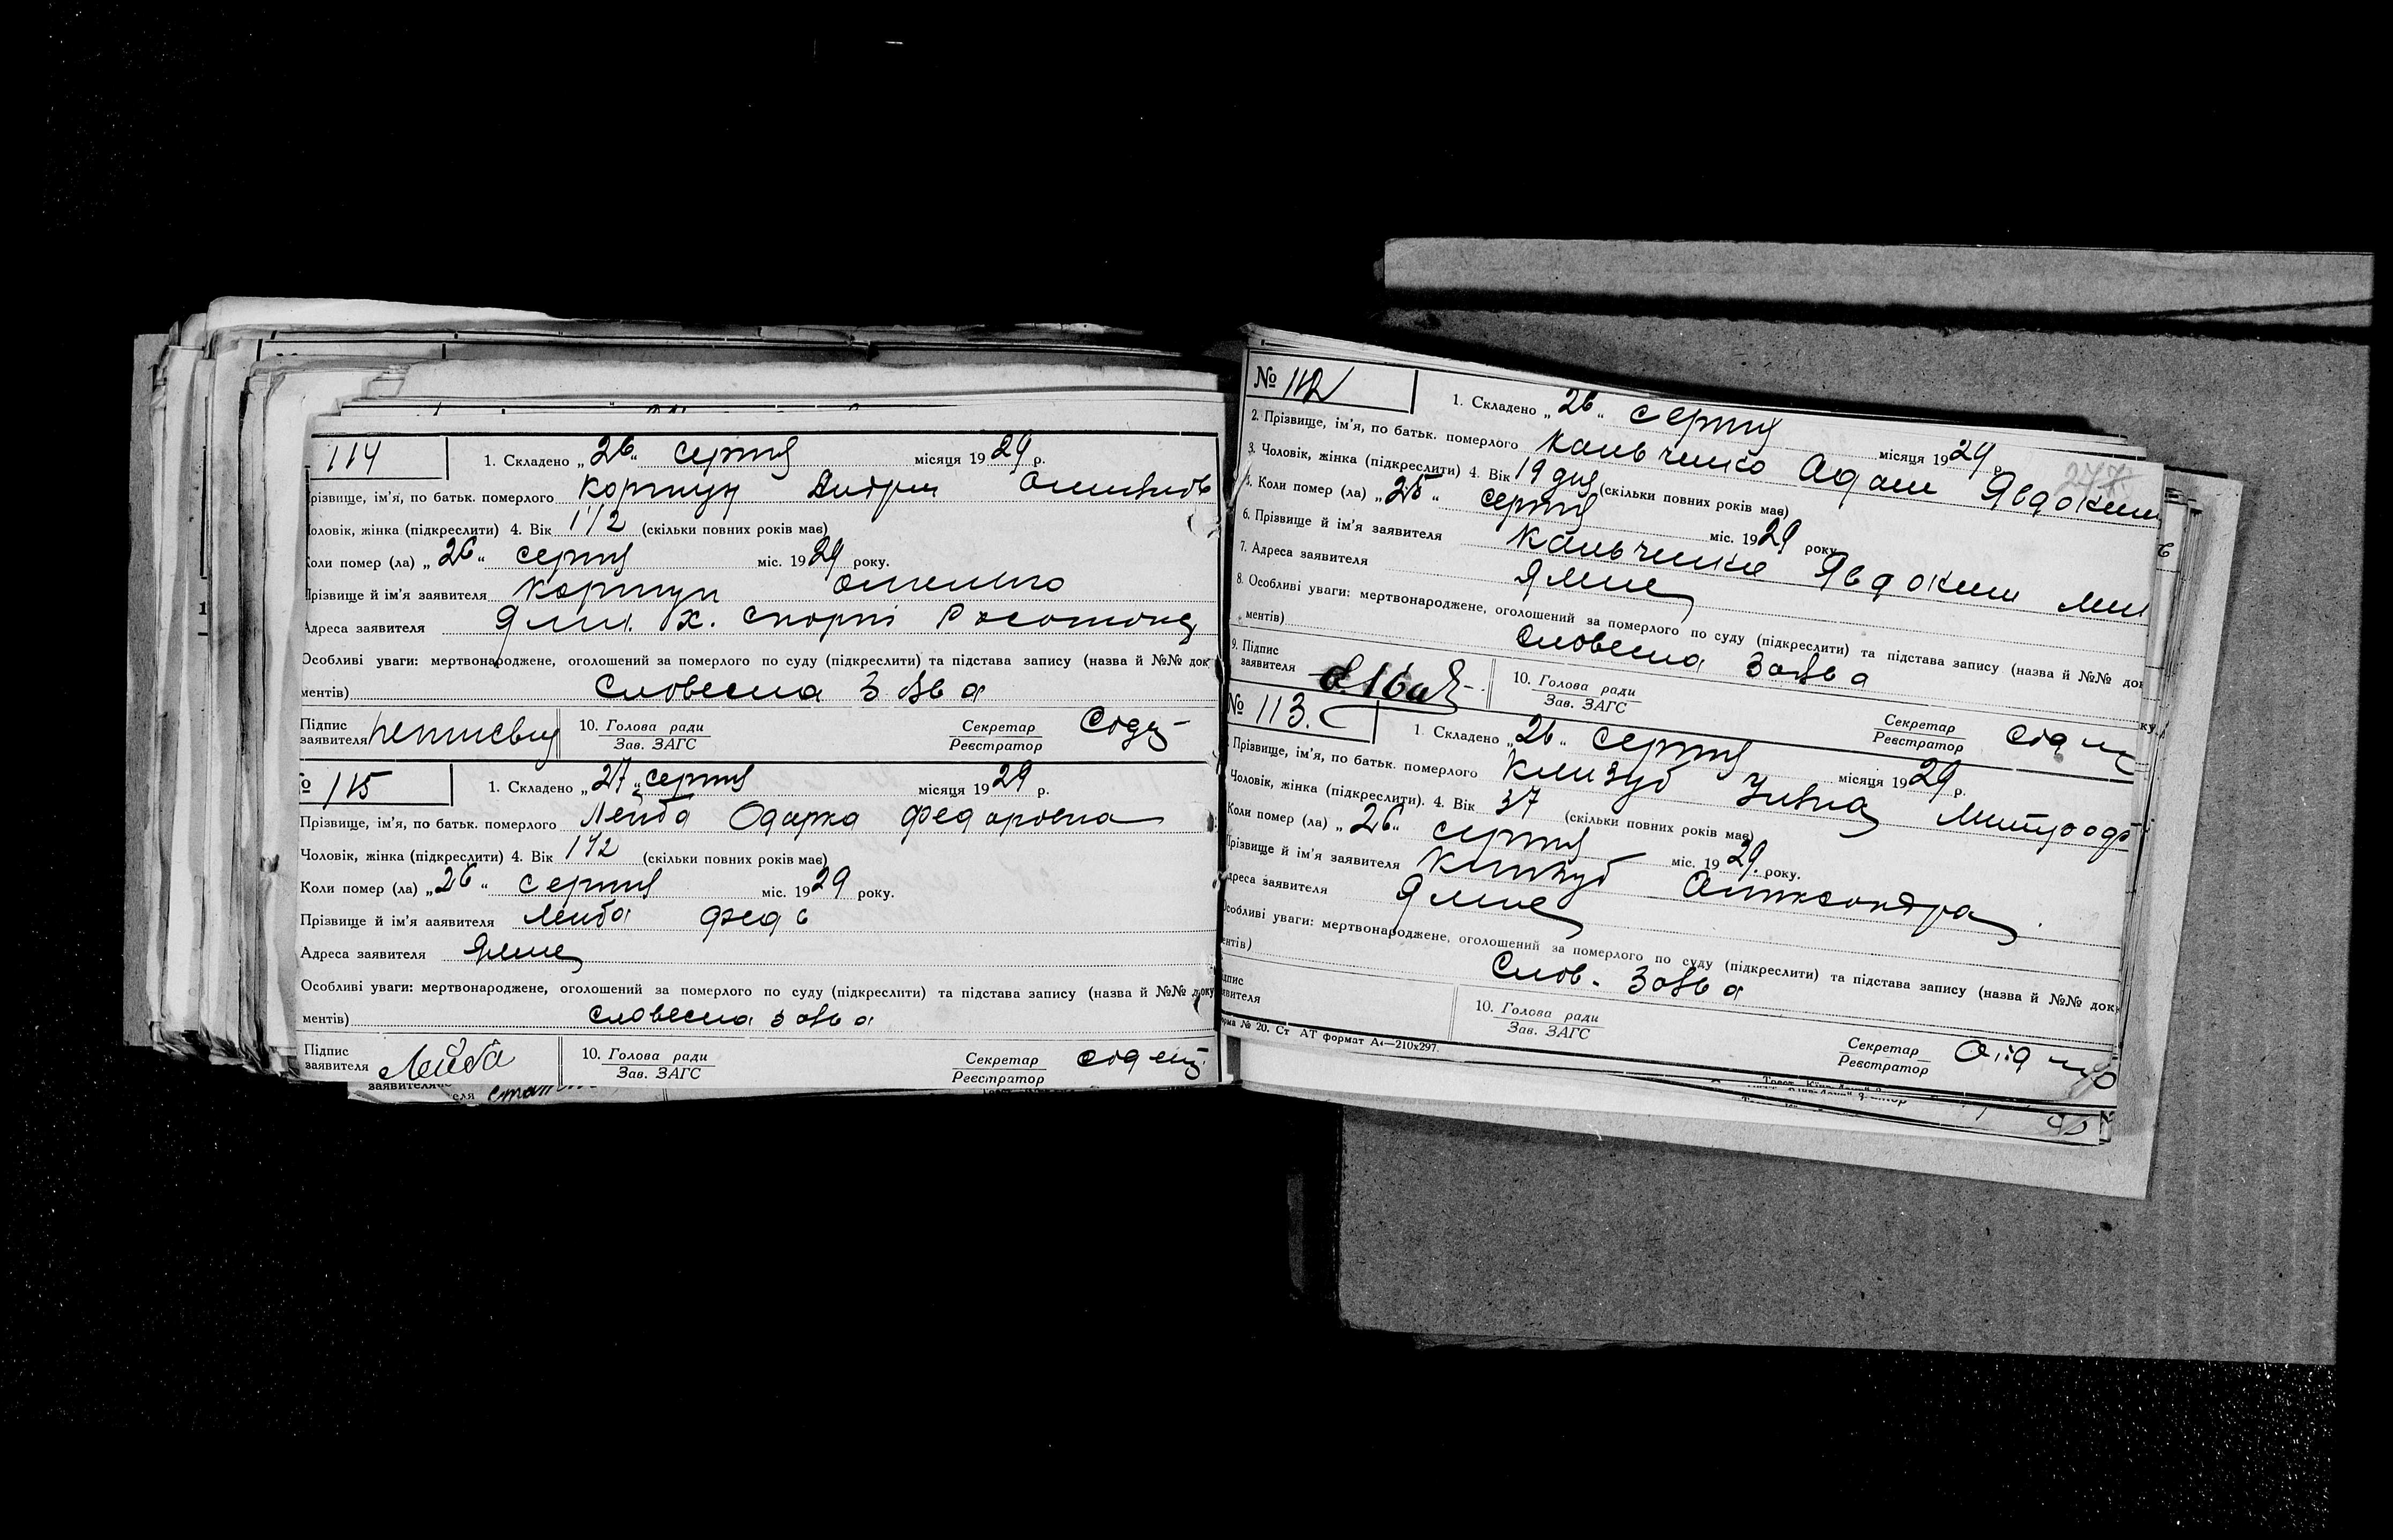 114
1. Складено „26“ серпня місяця 1929 р.
різвище, ім'я, по батьк. померлого Коршун Андрій
оловік, жінка (підкреслити) 4. Вік 1 1/2 (скільки повних років має)
Коли помер (ла) „26“ серпня міс. 1929 року.
Прізвище й ім'я заявителя Коршун
Адреса заявителя Ямп. х.
Особливі уваги: мертвонароджене, оголошений за померлого по суду (підкреслити) та підстава запису (назва й №№ док
ментів) Словесна заява
Підпис заявителя неписьм 10. Голова ради Зав. ЗАГС Секретар Реєстратор
№ 115
1. Складено „27“ серпня місяця 1929 р.
Прізвище, ім'я, по батьк. померлого Лейба Одарка Федоровна
Чоловік, жінка (підкреслити) 4. Вік 1 1/2 (скільки повних років має)
Коли помер (ла) „26“ серпня міс. 1929 року.
Прізвище й ім'я аявителя Лейба Федо
Адреса заявителя Ямне
Особливі уваги: мертвонароджене, оголошений за померлого по суду (підкреслити) та підстава запису (назва й №№ доку
ментів) словесна заява
Підпис заявителя Лейба 10. Голова ради Зав. ЗАГС Секретар Реєстратор
№ 112
1. Складено „26“ серпня місяця 1929 р.
2. Прізвище, ім'я, по батьк. померлого Кальченко Адам Явдоким
3. Чоловік, жінка (підкреслити) 4. Вік 19 дня (скільки повних років має)
Коли помер (ла) „25“ серпня міс. 1929 року
6. Прізвище й ім'я заявителя Кальченко Явдоким
7. Адреса заявителя Ямне
8. Особливі уваги: мертвонароджене, оголошений за померлого по суду (підкреслити) та підстава запису (назва й №№ док
ментів) Словесна заява
9. Підпис заявителя 10. Голова ради Зав. ЗАГС Секретар Реєстратор
№ 113.
1. Складено „26“ серпня місяця 1929 р.
Прізвище, ім'я, по батьк. померлого Клизуб
Чоловік, жінка (підкреслити). 4. Вік 37 (скільки повних років має)
Коли помер (ла) „26“ серпня міс. 1929. року.
Прізвище й ім'я заявителя Клизуб
дреса заявителя Ямне
Особливі уваги: мертвонароджене, оголошений за померлого по суду (підкреслити) та підстава запису (назва й №№ док
ентів) Слов. заява
дпис явителя 10. Голова ради Зав. ЗАГС Секретар Реєстратор
орма № 20. Ст АТ формат А4—210x297.